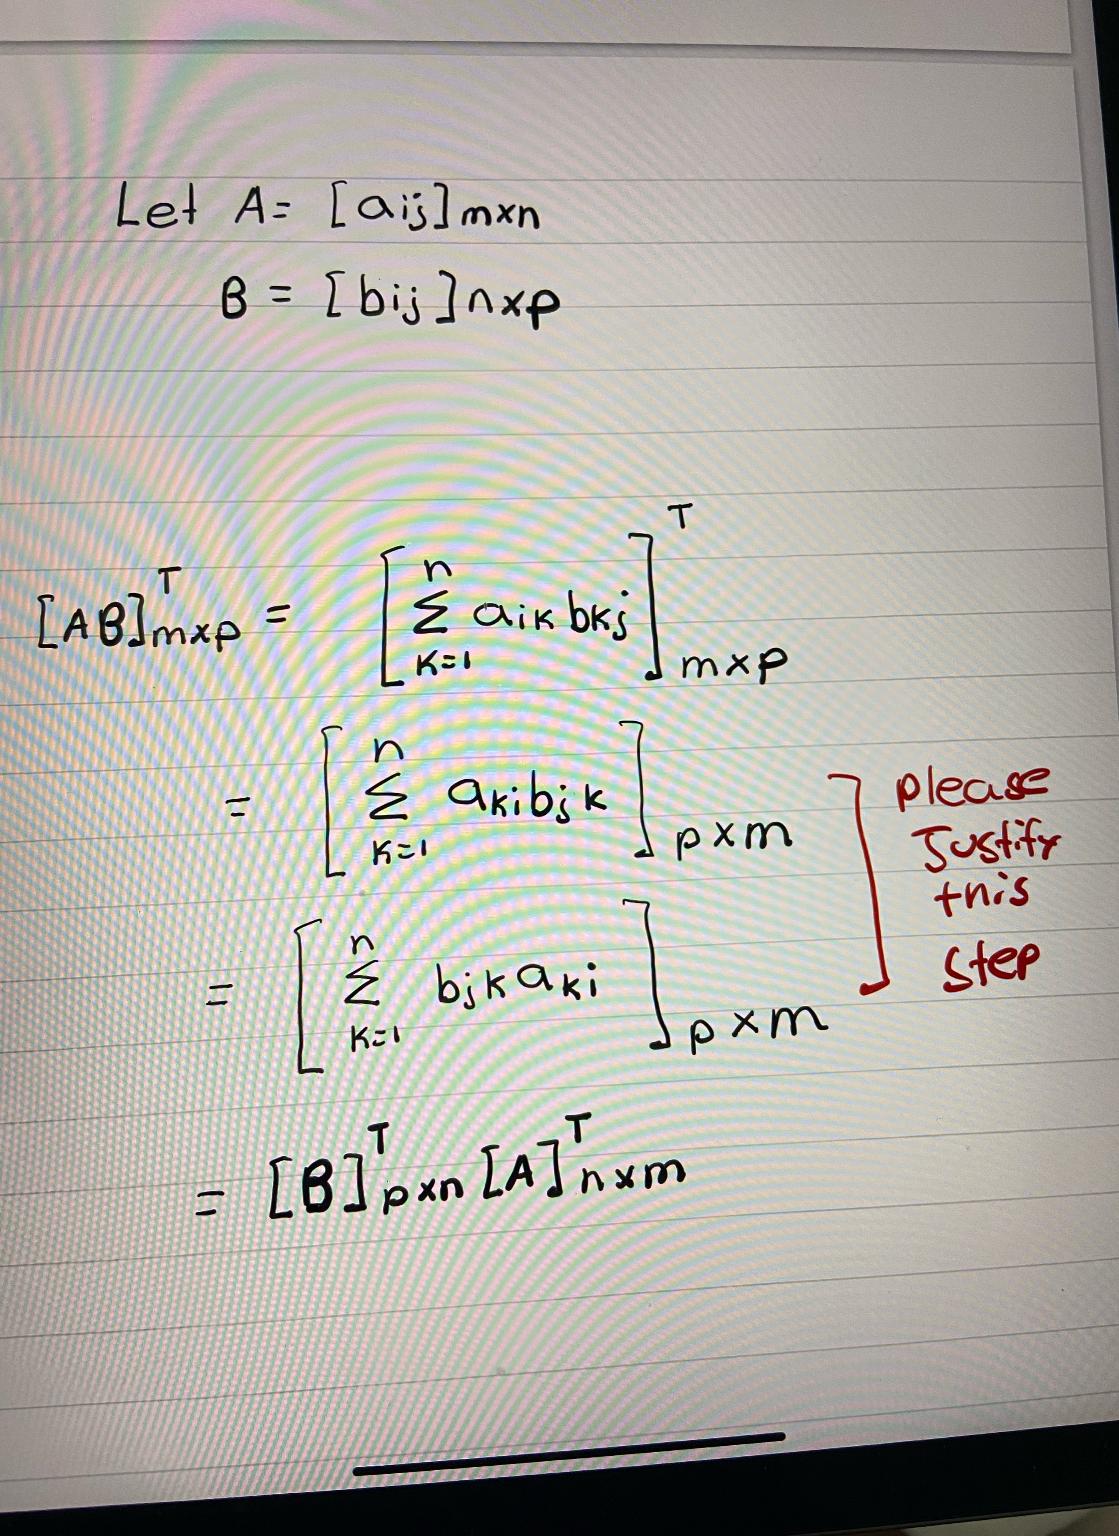 Let A= [aij]m×n
B = [bij]n×p
[AB]ᵀm×p = [n Σ K=1 aiK bKj]ᵀ m×p
= [n Σ K=1 aKi bjK] p×m
= [n Σ K=1 bjK aKi] p×m
please
Justify
this
step
= [B]ᵀp×n [A]ᵀn×m